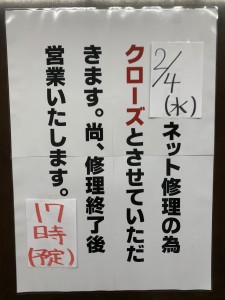 2/4(水)ネット修理の為
クローズとさせていただ
きます。尚、修理終了後
営業いたします。
17時(予定)